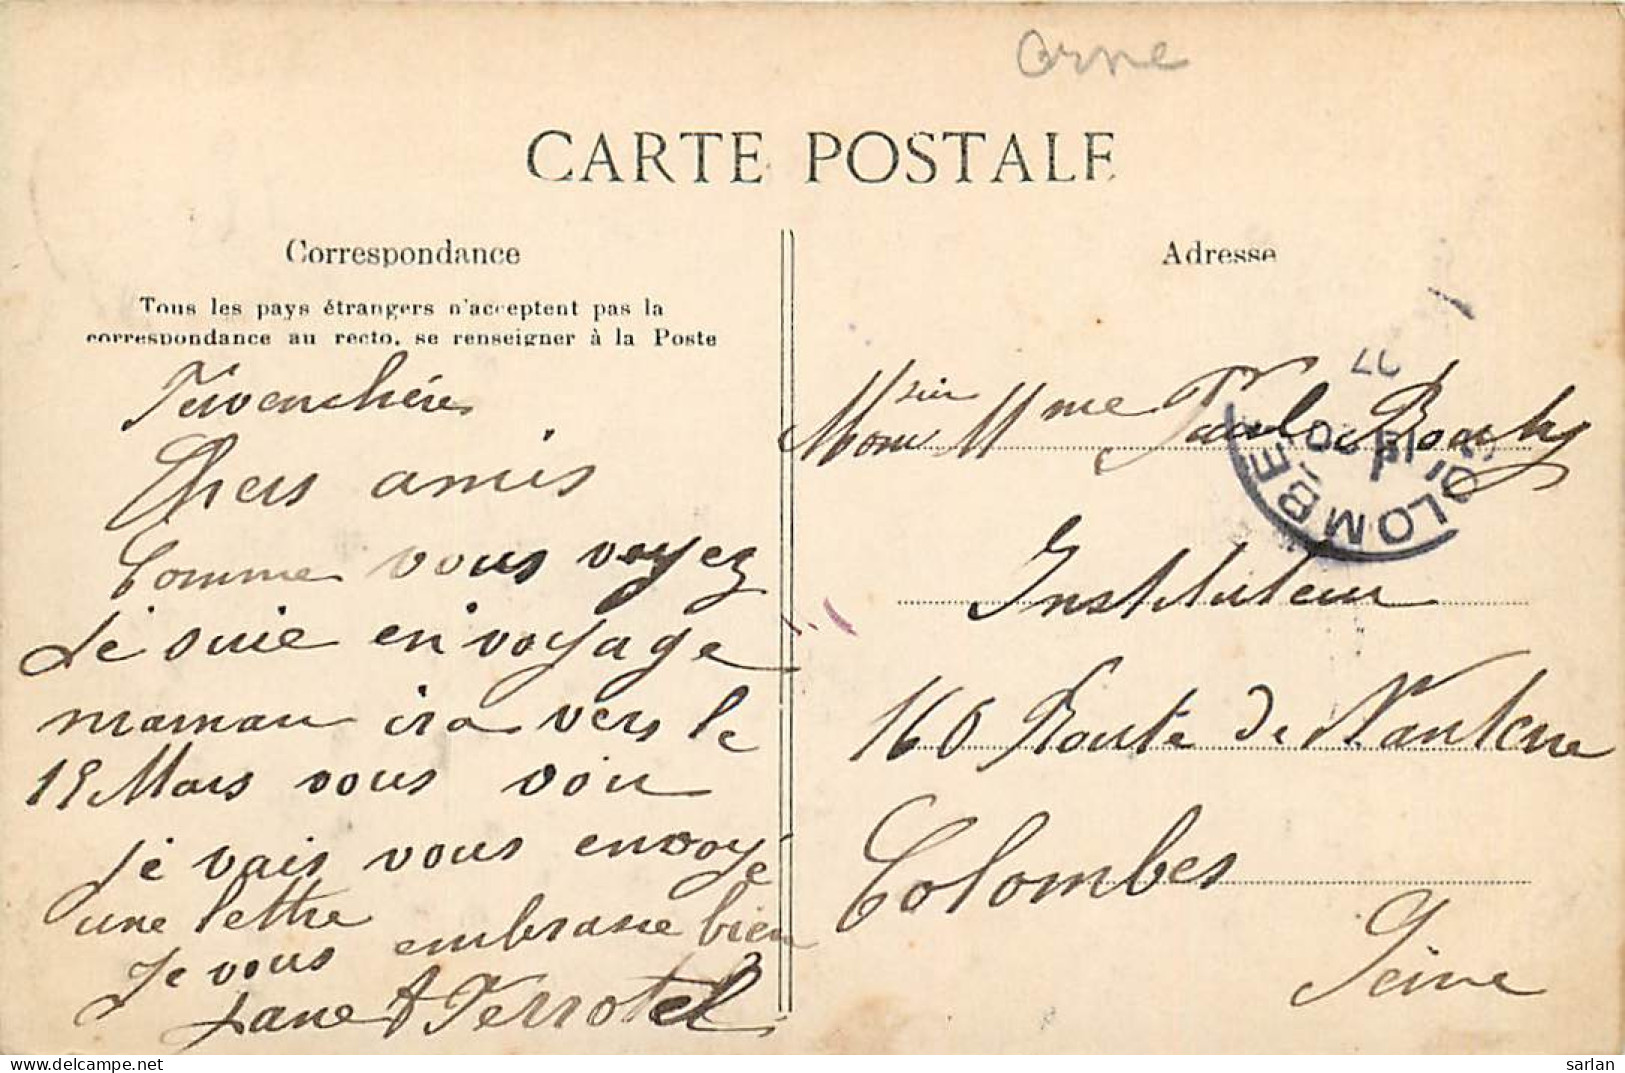 Orne
CARTE POSTALE
Correspondance
Tous les pays étrangers n'acceptent pas la
correspondance au recto, se renseigner à la Poste
Chers amis
Comme vous voyez
Je suie en voyage
maman ira vers le
15 Mars vous voir
je vais vous envoyé
une lettre
Je vous embrasse bien
Adresse
Monsieur Mme Paul
Instituteur
160 Route de Nanterre
Colombes
Seine
COLOMBES
sarlan